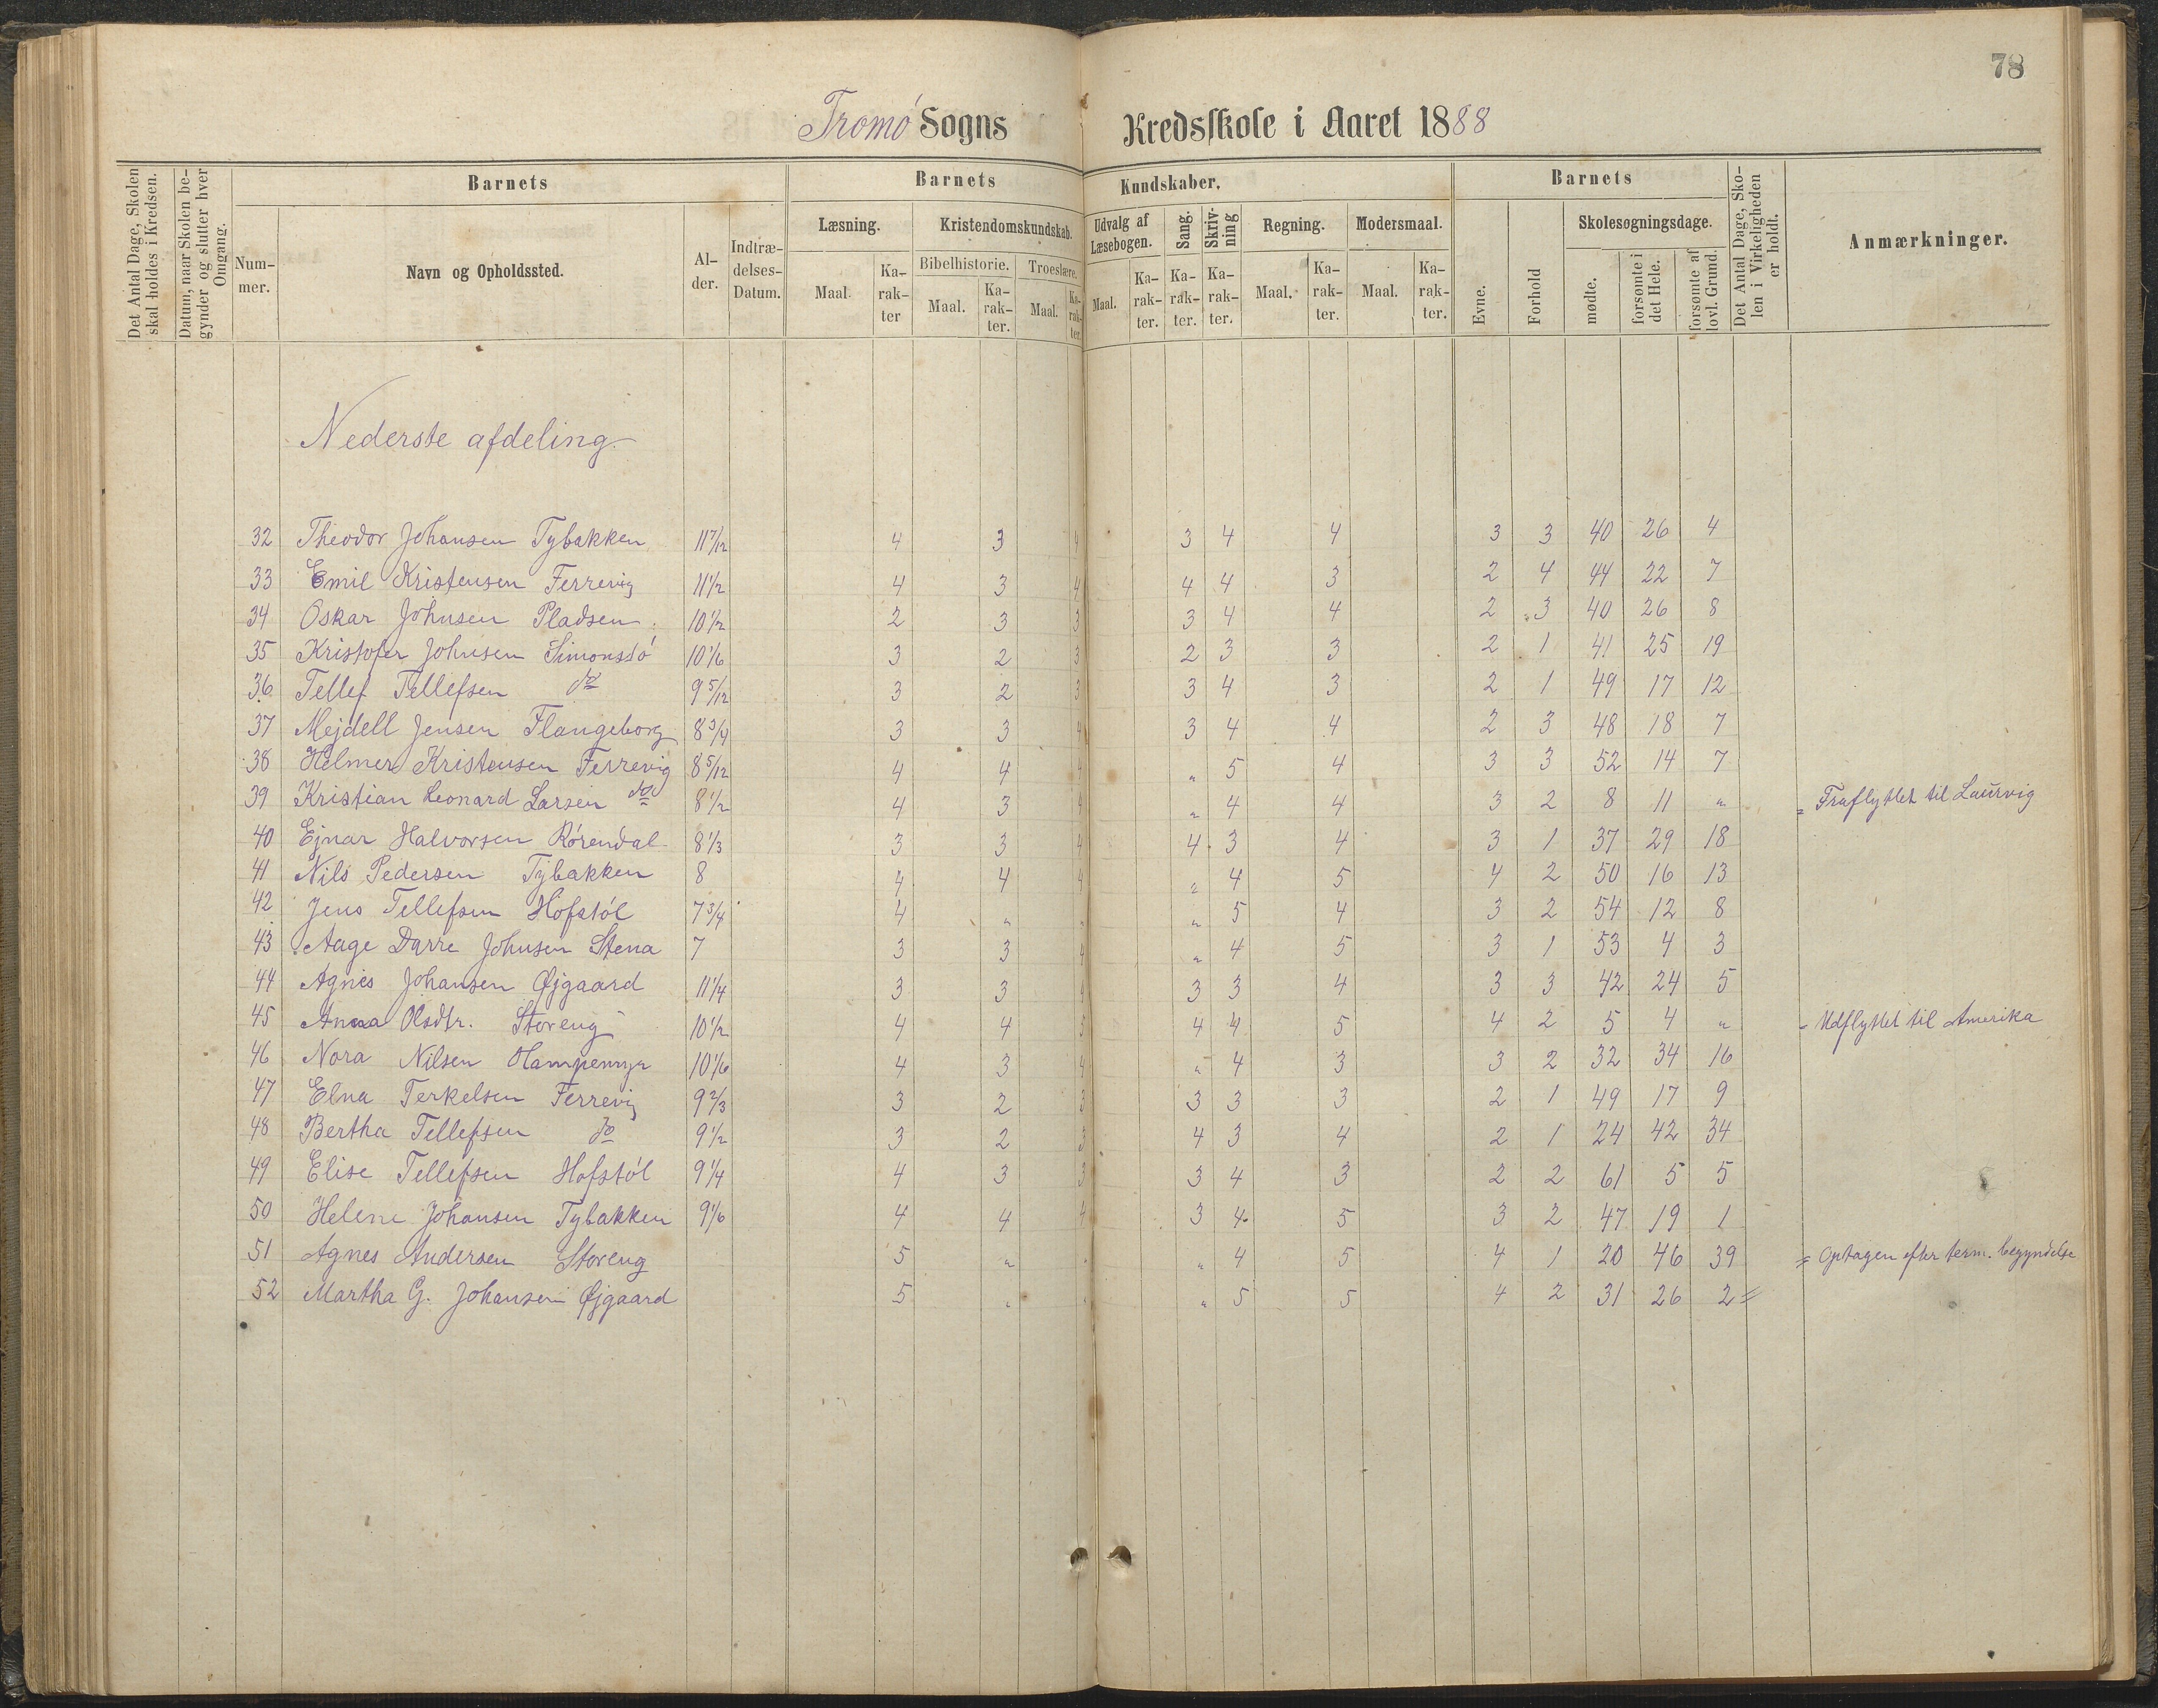 78
Tromø Sogns Kredsskole i Aaret 1888
Det Antal Dage, Skolen skal holdes i Kredsen.
Datum, naar Skolen begynder og slutter hver Omgang.
Barnets
Nummer.
Navn og Opholdssted.
Alder.
Indtrædelses-Datum.
Barnets Kundskaber.
Læsning.
Maal.
Karakter
Kristendomskundskab.
Bibelhistorie.
Maal.
Karakter.
Troeslære.
Maal.
Karakter.
Udvalg af Læsebogen.
Maal.
Karakter.
Sang.
Karakter.
Skrivning
Karakter.
Regning.
Maal.
Karakter.
Modersmaal.
Maal.
Karakter.
Barnets
Evne.
Forhold
Skolesøgningsdage.
mødte.
forsømte i det Hele.
forsømte af lovl. Grund.
Det Antal Dage, Skolen i Virkeligheden er holdt.
Anmærkninger.
Nederste afdeling
32 Theodor Johansen Tybakken 11 7/12 4 3 4 3 4 4 3 3 40 26 4
33 Emil Kristensen Ferrevig 11 1/2 4 3 4 4 4 3 2 4 44 22 7
34 Oskar Johnsen Pladsen 10 1/2 2 3 3 3 4 4 2 3 40 26 8
35 Kristofer Johnsen Simonstø 10 1/6 3 2 3 2 3 3 2 1 41 25 19
36 Tellef Tellefsen do 9 5/12 3 2 3 3 4 3 2 1 49 17 12
37 Mejdell Jensen Flangeborg 8 3/4 3 3 4 3 4 4 2 3 48 18 7
38 Helmer Kristensen Ferrevig 8 5/12 4 4 4 " 5 4 3 3 52 14 7
39 Kristian Leonard Larsen do 8 1/2 4 3 4 " 4 4 3 2 8 11 " = Fraflyttet til Laurvig
40 Ejnar Halvorsen Rørendal 8 1/3 3 3 4 4 3 4 3 1 37 29 18
41 Nils Pedersen Tybakken 8 4 4 4 " 4 5 4 2 50 16 13
42 Jens Tellefsen Hofstøl 7 3/4 4 " " " 5 4 3 2 54 12 8
43 Aage Darre Johnsen Stena 7 3 3 4 " 4 5 3 1 53 4 3
44 Agnes Johansen Øjgaard 11 1/4 3 3 4 3 3 4 3 3 42 24 5
45 Anna Olsdtr. Storeng 10 1/2 4 4 5 4 4 5 4 2 5 4 " - Udflyttet til Amerika
46 Nora Nilsen Hampemyr 10 1/6 4 3 4 " 4 3 3 2 32 34 16
47 Elna Terkelsen Ferrevig 9 2/3 3 2 3 3 3 3 2 1 49 17 9
48 Bertha Tellefsen do 9 1/2 3 2 3 4 3 4 2 1 24 42 34
49 Elise Tellefsen Hofstøl 9 1/4 4 3 3 3 4 3 2 2 61 5 5
50 Helene Johansen Tybakken 9 1/6 4 4 4 3 4 5 3 2 47 19 1
51 Agnes Andersen Storeng 5 " " " 4 5 4 1 20 46 39 = Optagen efter term. begyndelse
52 Martha G. Johansen Øjgaard 5 " " " 5 5 4 2 31 26 2 =